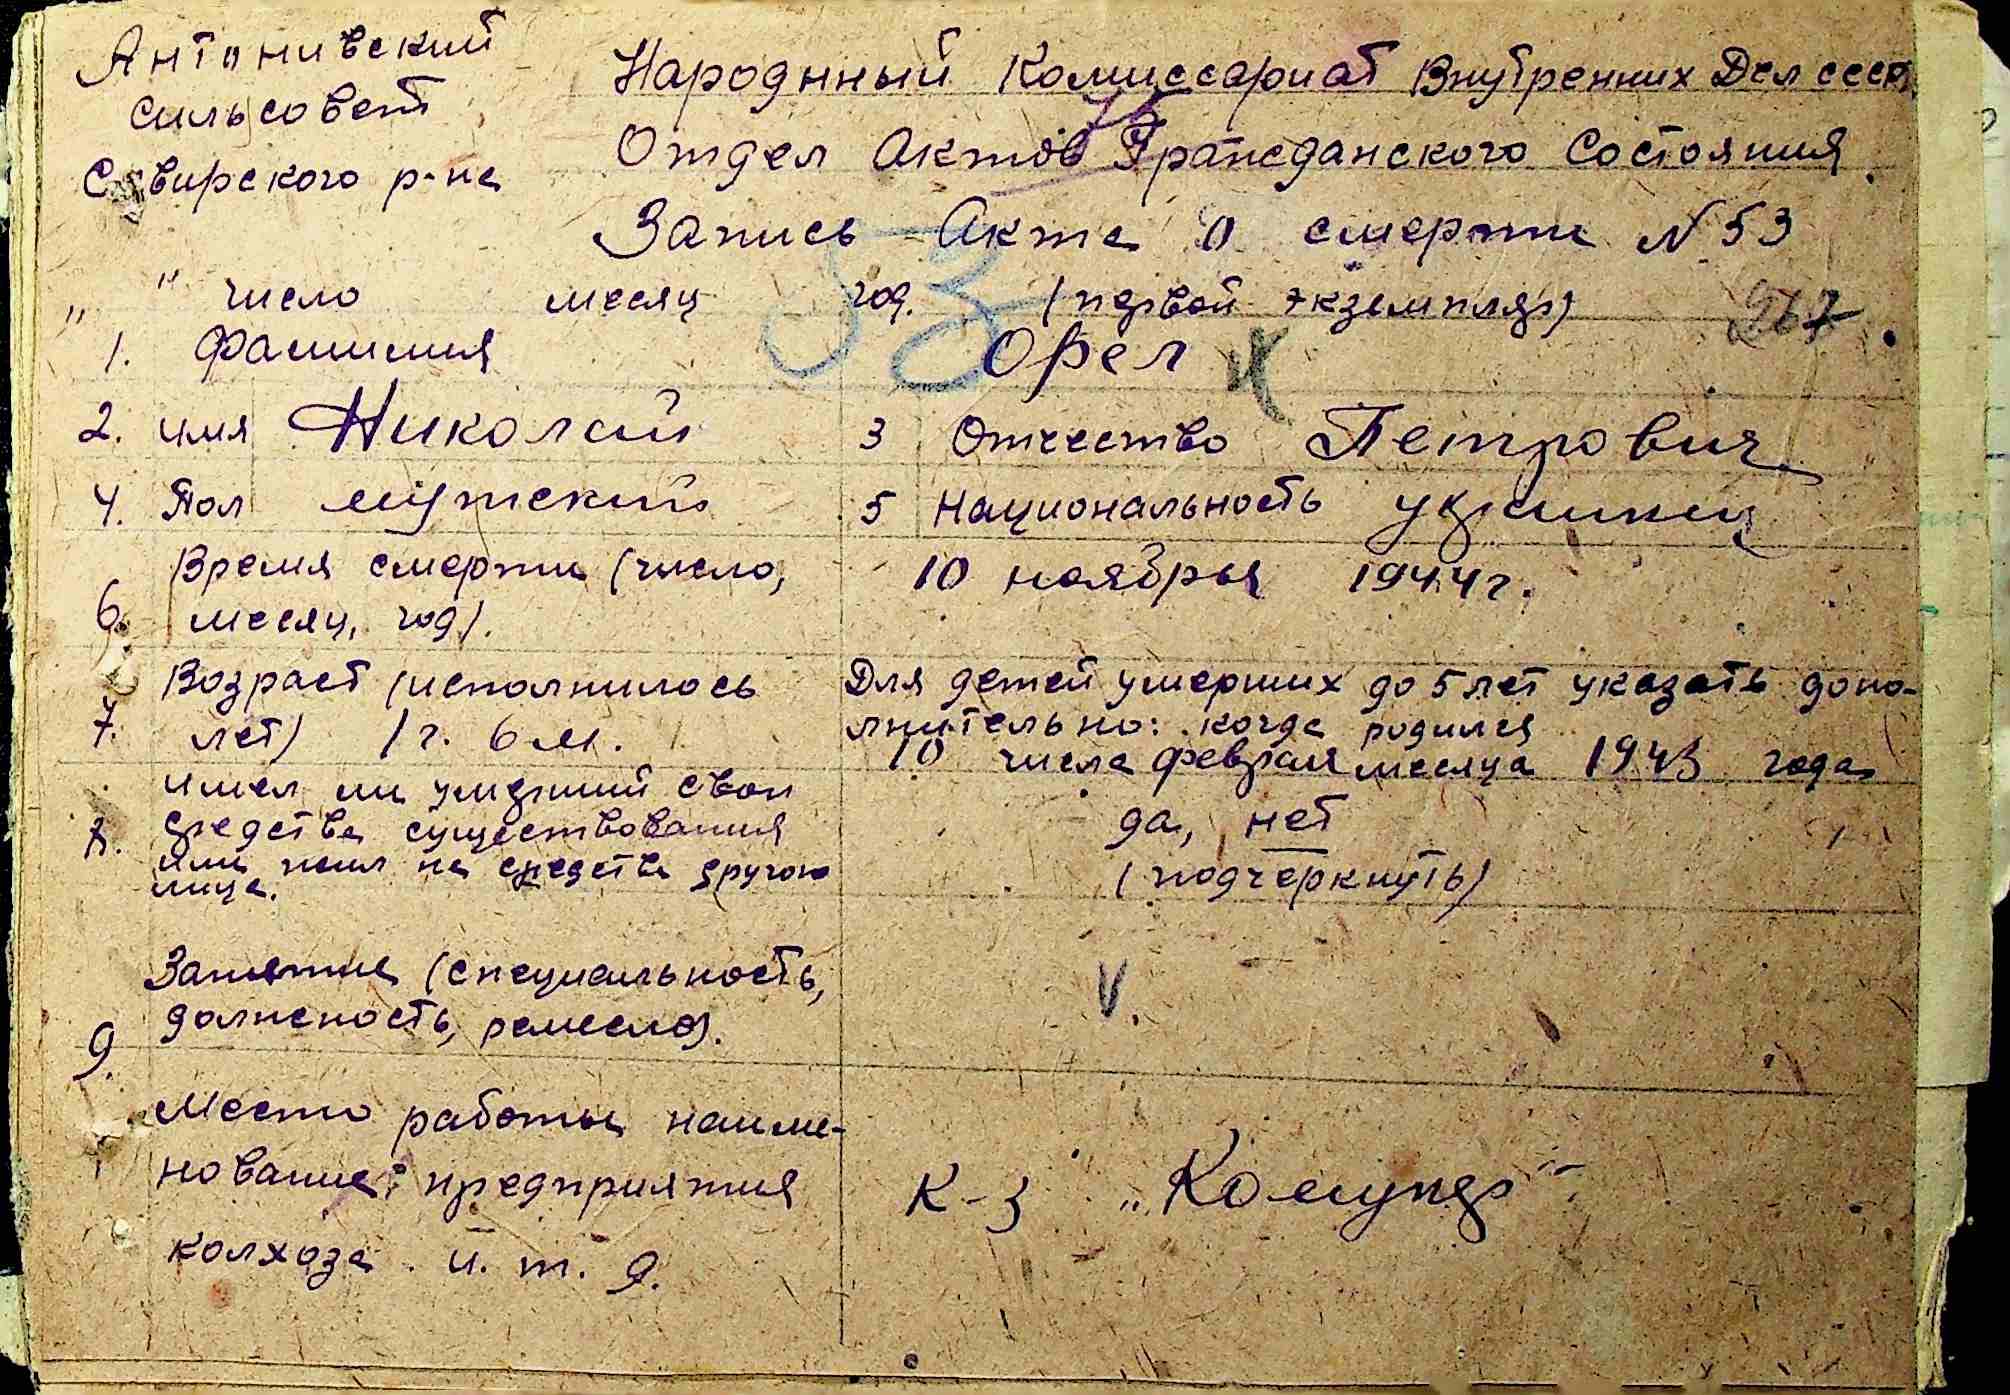 Антонивский
сильсовет
Сквирского р-на
Народнный Комиссариат Внутренних Дел СССР
76
Отдел Актов Гражданского Состояния.
Запись Акта о смерти N 53
53
" " число месяц год. (первой экземпляр)
267
1. Фамилия Орел
2. имя Николай 3 Отчество Петрович
4. Пол мужский 5 Национальность украинец
6. Время смерти (число, месяц, год). 10 ноября 1944 г.
7. Возраст (исполнилось лет) 1 г. 6 м.
Для детей умерших до 5 лет указать допо-
лнительно: когда родился
10 числа февраля месяца 1943 года
8. имел ли умерший свои
средства существования
или жил на средства другого
лица.
да, нет
(подчеркнуть)
9. Занятие (специальность,
должность, ремесло).
Место работы наиме-
нование предприятия
колхоза и. т. д.
К-з "Комунар"